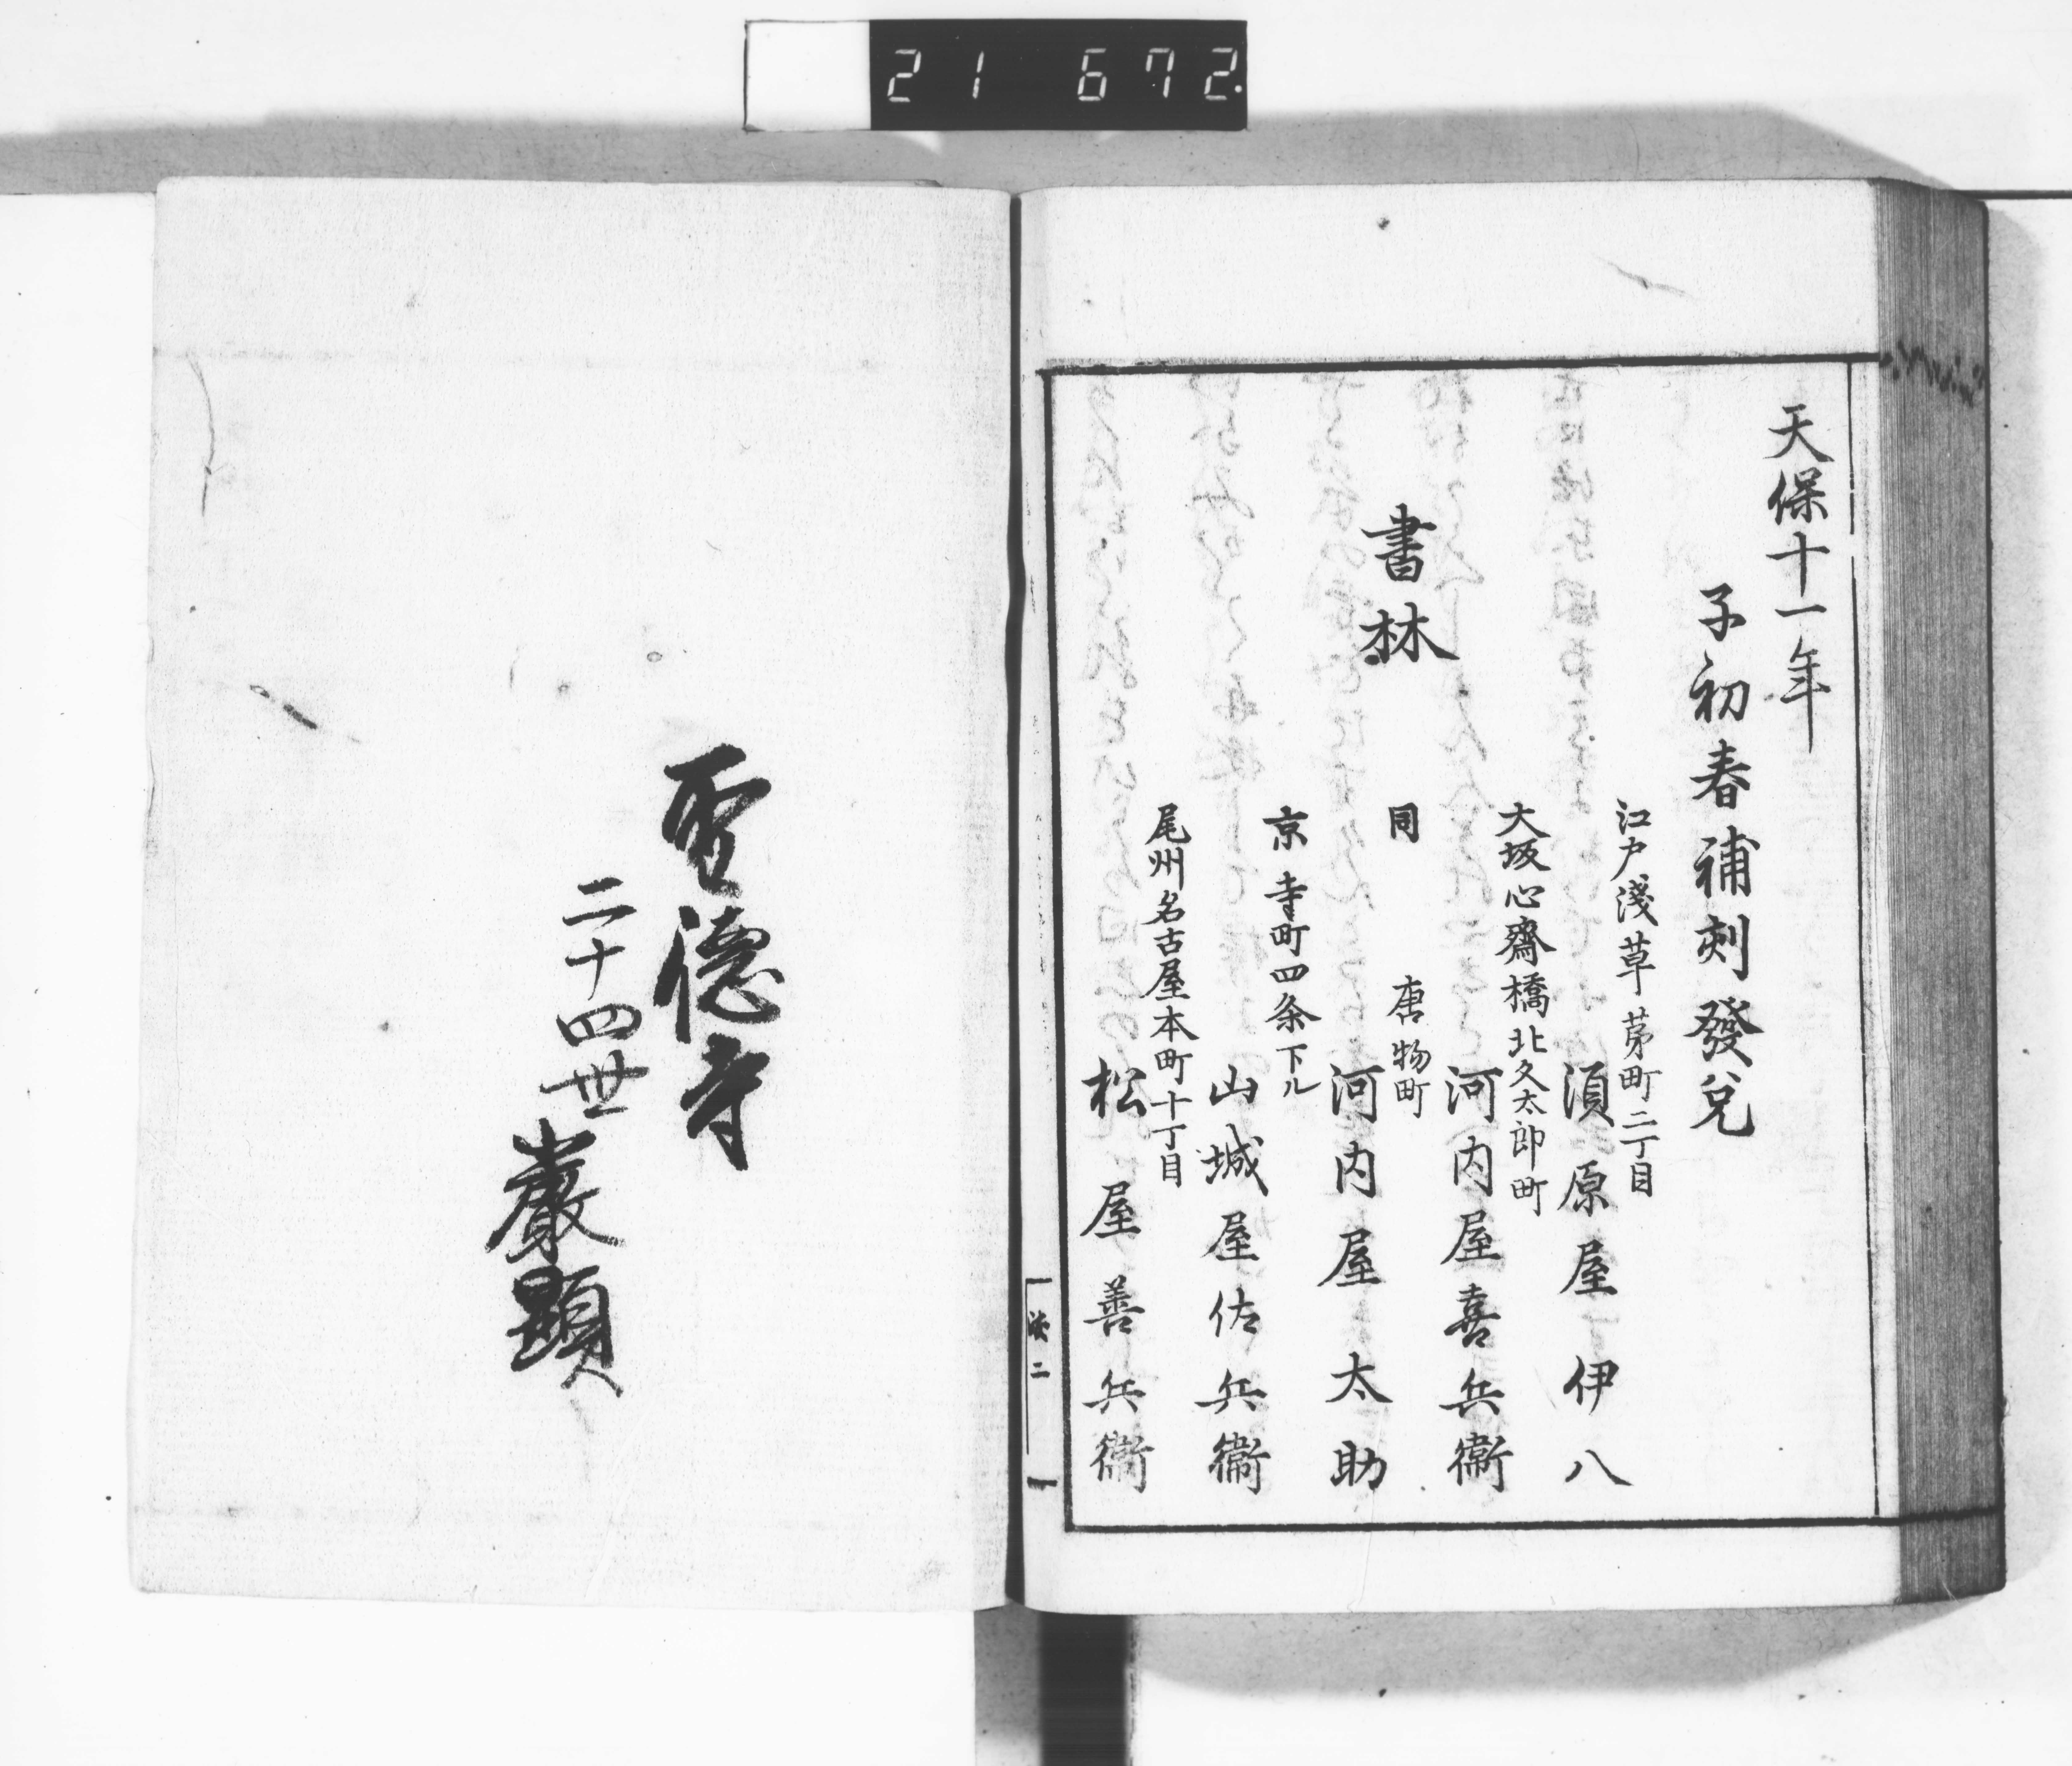 21 672.
天保十一年
子初春補刻發兌
書林
江戸淺草茅町二丁目
須原屋伊八
大坂心齋橋北久太郎町
河内屋喜兵衞
同 唐物町
河内屋太助
京寺町四条下ル
山城屋佐兵衞
尾州名古屋本町十丁目
松屋善兵衞
聖德寺
二十四世
巖顯